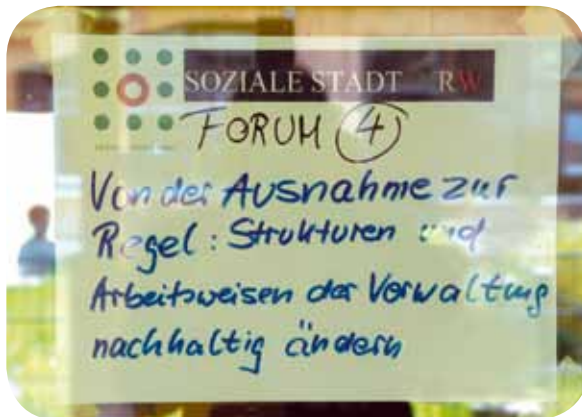 SOZIALE STADT RW
FORUM 4
Von der Ausnahme zur
Regel: Strukturen und
Arbeitsweisen der Verwaltung
nachhaltig ändern